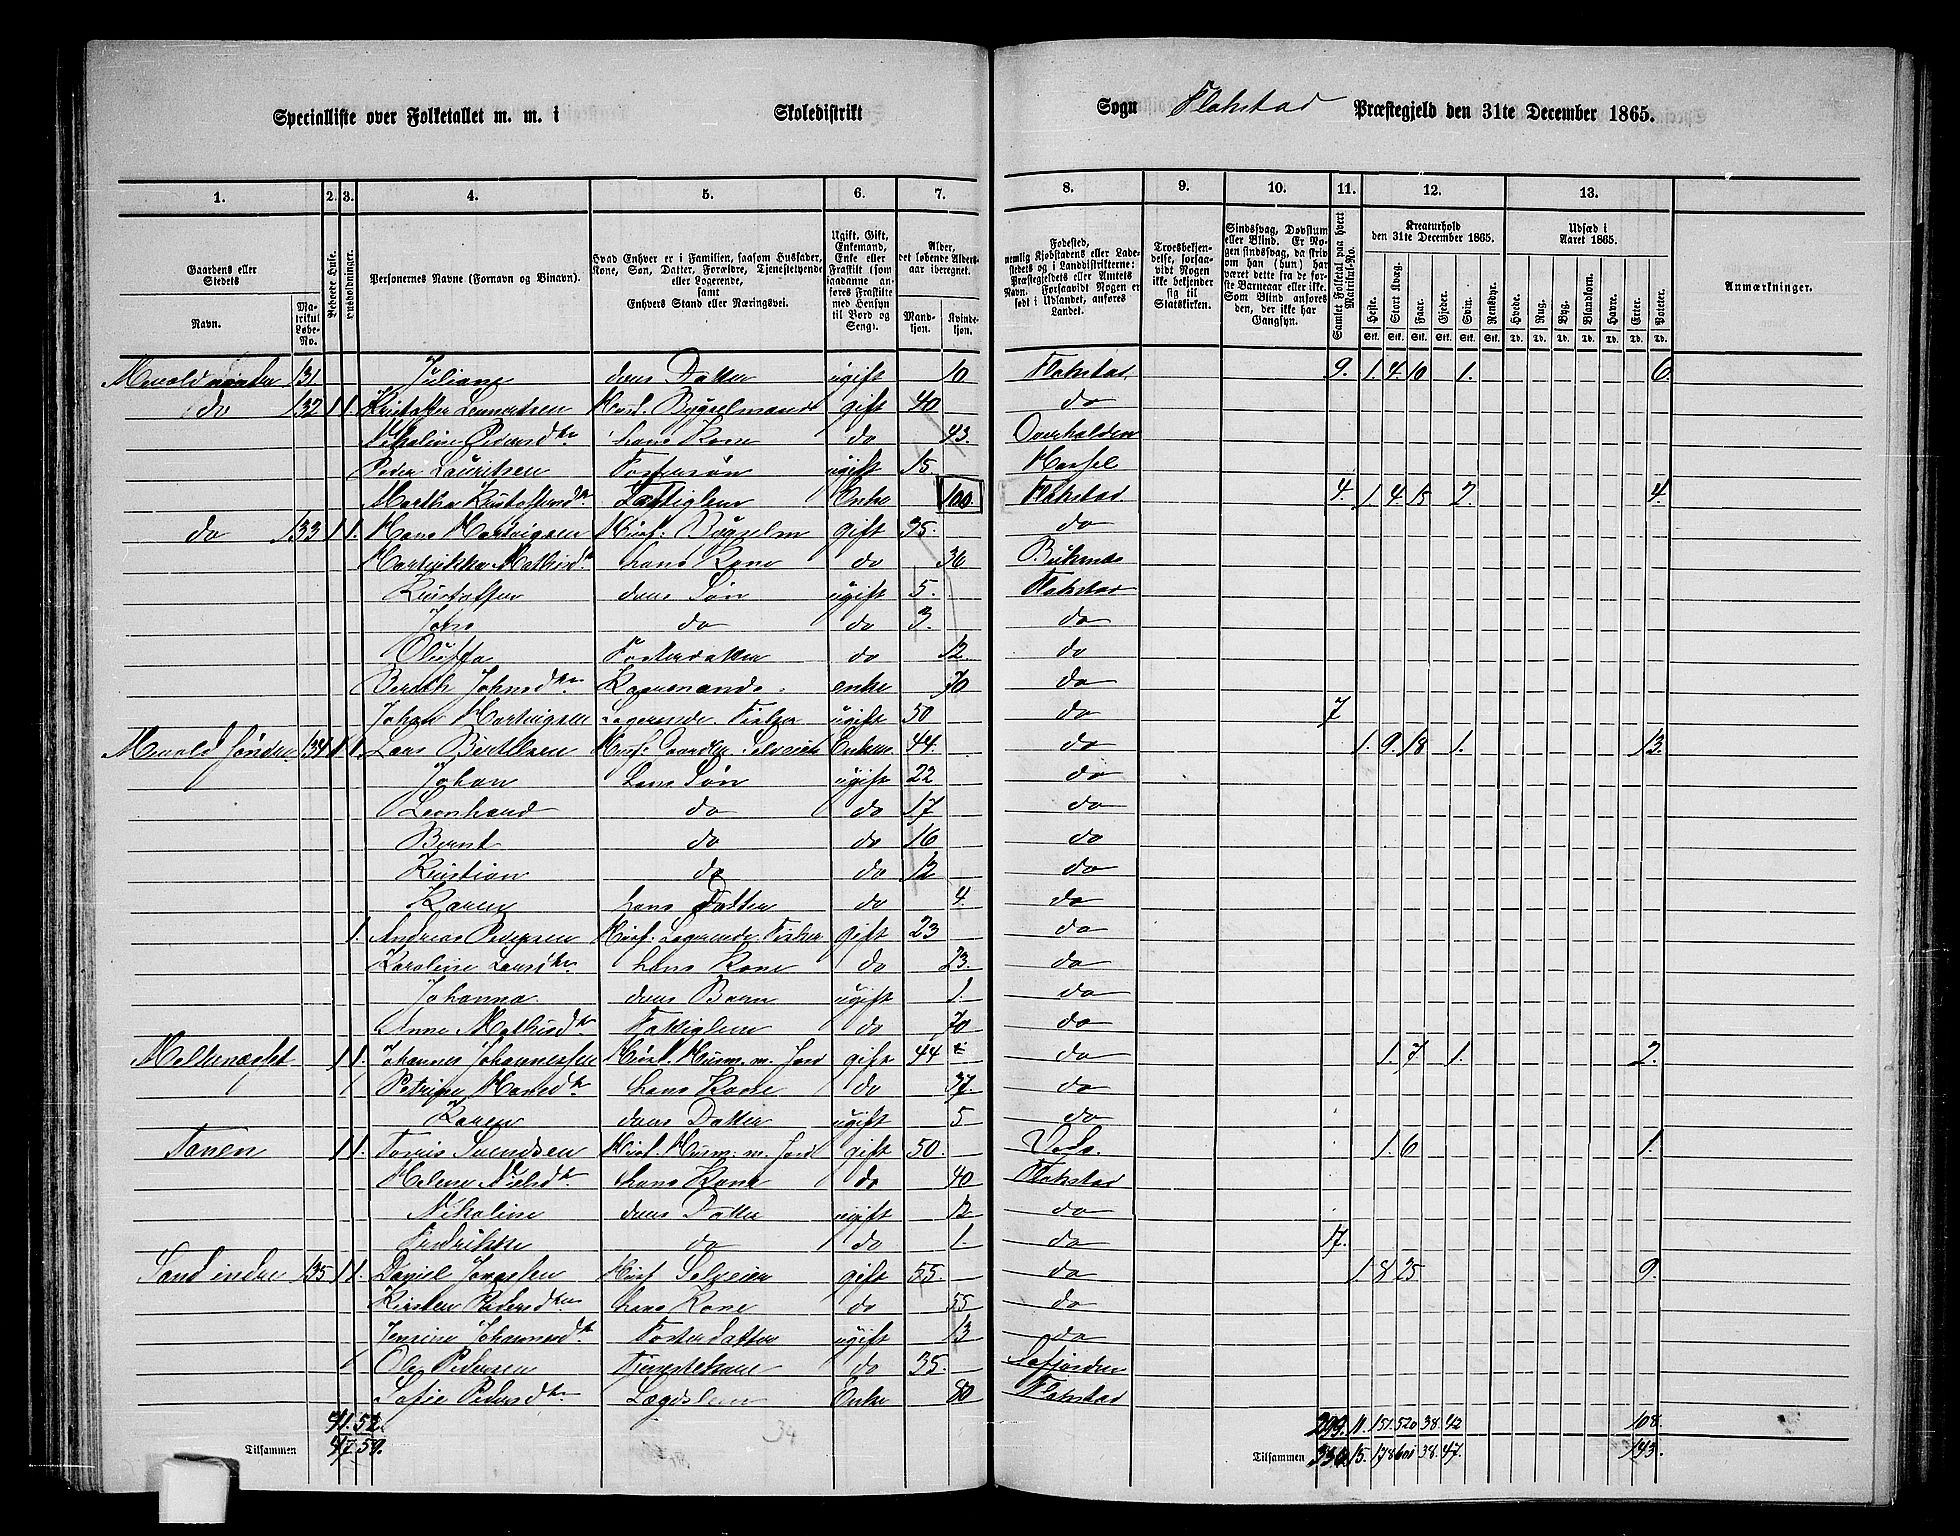 Specialliste over Folketallet m. m. i Skoledistrikt Sogn Flakstad Præstegjeld den 31te December 1865.
1. 2. 3. 4. 5. 6. 7. 8. 9. 10. 11. 12. 13.
Gaardens eller Stedets Navn. Matrikul Løbe-No. Beboede Huse. Husholdninger. Personernes Navne (Fornavn og Binavn). Hvad Enhver er i Familien, saasom Husfader, Kone, Søn, Datter, Forældre, Tjenestetyende eller Logerende, samt Enhvers Stand eller Næringsvei. Ugift, Gift, Enkemand, Enke eller Fraskilt (som saadanne anføres Fraskilte med Hensyn til Bord og Seng). Alder, det løbende Aldersaar iberegnet. Mandkjøn. Kvindekjøn.
Fødested, nemlig Kjøbstadens eller Ladestedets og i Landdistrikterne: Præstegjeldets eller Amtets Navn. Forsaavidt Nogen er født i Udlandet, anføres Landet. Troesbekjendelse, forsaavidt Nogen ikke bekjender sig til Statskirken. Sindssvag, Døvstum eller Blind. Er Nogen sindssvag, da tilskriv om han (hun) har været dette fra de første Barneaar eller ikke. Som Blind anføres den, der ikke har Gangsyn. Samlet Folketal paa hvert Matrikul-No. Kreaturhold den 31te December 1865. Heste. Stort Kvæg. Faar. Gjeder. Svin. Rensdyr. Udsæd i Aaret 1865. Hvede. Rug. Byg. Blandkorn. Havre. Erter. Poteter. Anmærkninger.
131 Juliane deres Datter ugift 10 Flakstad 9. 1. 4. 10 1. 6.
do 132 1 1. Kristoffer Lennertsen gift 40 do
Nikoline Pedersdtr hans Kone do 43. Overhalden
Peder Lauritsen Fostersøn ugift 15 Hassel
Martha Kristoffersdtr Fattiglem Enke 100 Flakstad 4. 1. 4 15 2. 4.
do 133 1 1. Hans Hartvigsen Husf. Bygselm gift 35. do
hans Kone do 36 Buksnes
Kristoffer deres Søn ugift 5. Flakstad
Johs do do 3. do
Oluffa Fosterdatter do 12. do
Berith Johnsdtr enke 70 do
Johan Hartvigsen Logerende Fisker ugift 50 do 7
134 1 1. Lars Bertelsen Husf. Gaardbr. Selveier Enkem 44. do 1. 9. 18 1. 13.
Johan hans Søn ugift 22 do
Leonhard do do 17 do
Bernt do do 16 do
Kristian do do 12 do
Karen hans Datter do 4. do
1. Andreas Pedersen Husf. Logerende Fisker gift 23 do
Karoline Larsdtr hans Kone do 23. do
Johanna deres Barn ugift 1. do
Anne Mathisdtr Fattiglem do 70 do
1 1. Johannes Johannessen Husf. Husm. m. Jord gift 44 do 1. 7. 1. 2.
Petrine Hansdtr hans Kone do 37. do
Karen deres Datter ugift 5 do
Tanen 1 1. Tomis Svendsen Husf. Husm. m. Jord gift 50. 1. 6 1.
Helene Nielsdtr hans Kone do 40 Flakstad
Nikoline deres Datter ugift 12 do
Fredrikke do do 1 do 17.
Sand indre 135 1 1. Daniel Jonassen Husf Selveier gift 55. do 1 8 25 9.
Kirsten Pedersdtr hans Kone do 55 do
Jensine Johannesdtr Foster Datter ugift 13 do
Ole Pedersen Tjenestekarl do 35.
Sofie Pedersdtr Lægdslem Enke 80 Flakstad
41. 52. 299. 11. 151. 520 38. 42 108.
Tilsammen 47. 59. 34 Tilsammen 336 15. 178 601 38. 47. 143.